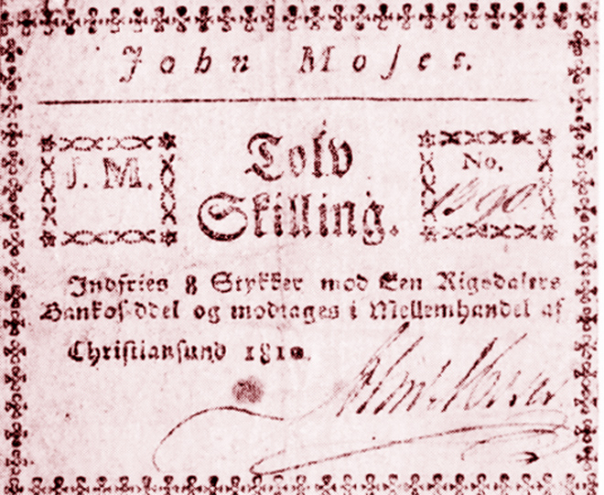 John Moses.
J. M.
Tolv
Skilling.
No.
Indfries 8 Stykker mod Een Rigsdalers
Bankoseddel og modtages i Mellemhandel af
Christiansund 1810.